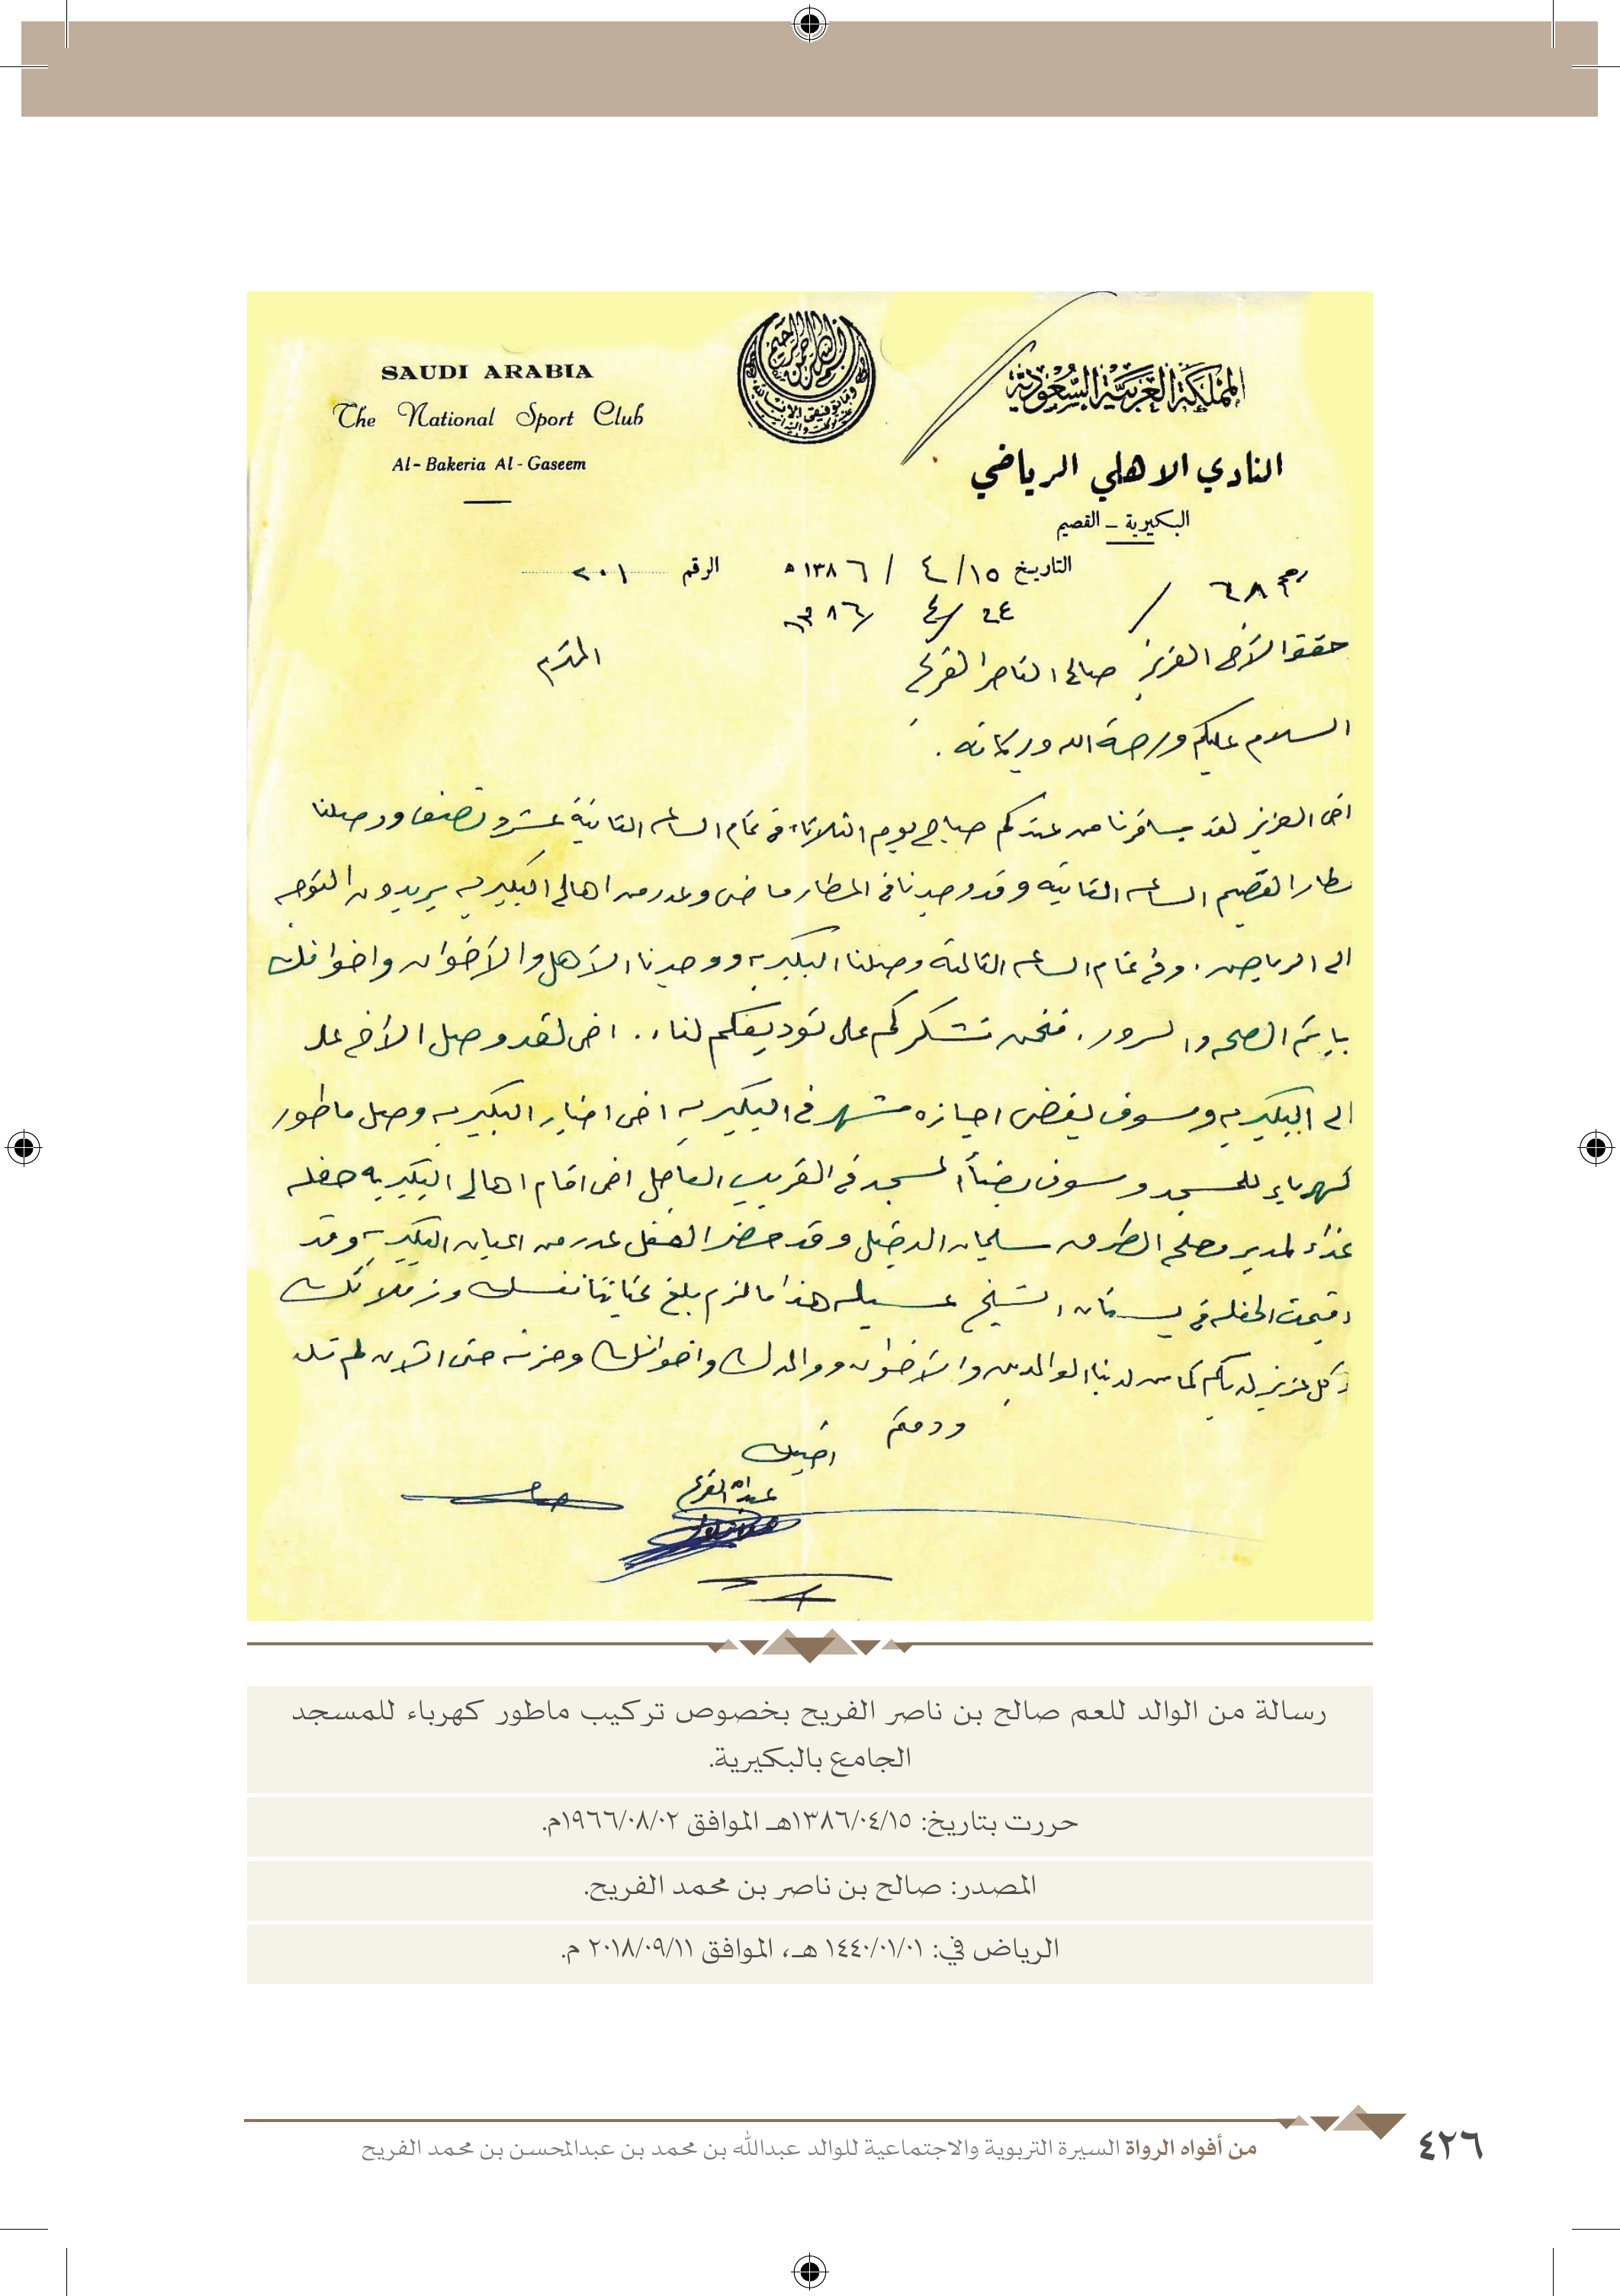 SAUDI ARABIA
The National Sport Club
Al-Bakeria Al-Gaseem
المملكة العربية السعودية
النادي الاهلي الرياضي
البكيرية - القصيم
التاريخ ١٥/ ٤ / ١٣٨٦ ه الرقم ٢٠١
٢٤ / ٤ / ٨٦
٦٨
الأخ العزيز صالح الناصر الفريح المحترم
السلام عليكم ورحمة الله وبركاته .
اخي العزيز لقد سافرنا من عندكم صباح يوم الثلاثاء في تمام الساعه الثانية عشر ونصف ووصلنا
مطار القصيم الساعه الثانيه وقد وجدنا في المطار ماضي وعدد من اهالي البكيريه يريدون التوجه
الى الرياض . وفي تمام الساعه الثالثة وصلنا البكيريه ووجدنا الأهل والأخوان واخوانك
باتم الصحه والسرور . فنحن نشكركم على توديعكم لنا .. اخي لقد وصل الأخ علي
الى البكيريه وسوف يقضي اجازه شهر في البكيريه اخي اخبار البكيريه وصل ماطور
كهرباء للمسجد وسوف يضاء المسجد في القريب العاجل اخي اقام اهالي البكيريه حفله
غداء لمدير مصلحه الطرق سليمان الدخيل وقد حضر الحفل عدد من اعيان البكيريه وقد
اقيمت الحفله في بستان الشيخ عسيله هذا ما لزم بلغ تحياتنا نفسك وزملائك
وكل عزيز لديكم كما من لدينا الوالدين والأخوان ووالدك واخوانك وحتى الان لم
ودمتم
اخيك
عبدالله الفريح
رسالة من الوالد للعم صالح بن ناصر الفريح بخصوص تركيب ماطور كهرباء للمسجد
الجامع بالبكيرية.
حررت بتاريخ: ١٣٨٦/٠٤/١٥هـ الموافق ١٩٦٦/٠٨/٠٢م.
المصدر: صالح بن ناصر بن محمد الفريح.
الرياض في: ١٤٤٠/٠١/٠١ هـ، الموافق ٢٠١٨/٠٩/١١ م.
من أفواه الرواة السيرة التربوية والاجتماعية للوالد عبدالله بن محمد بن عبدالمحسن بن محمد الفريح
٤٢٦